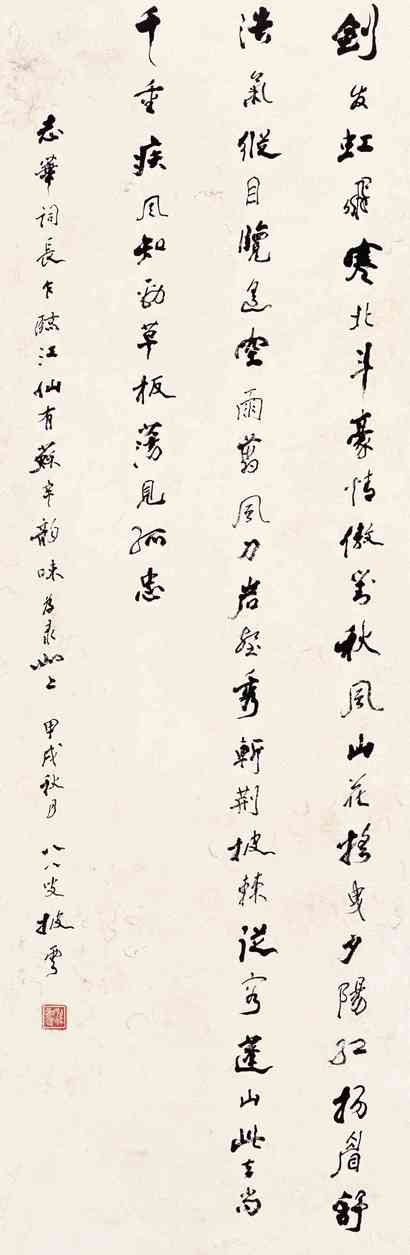 劍发虹飛寒北斗豪情傲對秋風山花搖曳夕陽红扬眉舒
浩氣縱目覽遥空雨剪風刀岩壑秀斬荆披棘從容蓬山此去尚
千重疾風知勁草板蕩見孤忠
志華詞長乍臨江仙有蘇辛韵味爲录此上 甲戌秋月 八八叟披雲